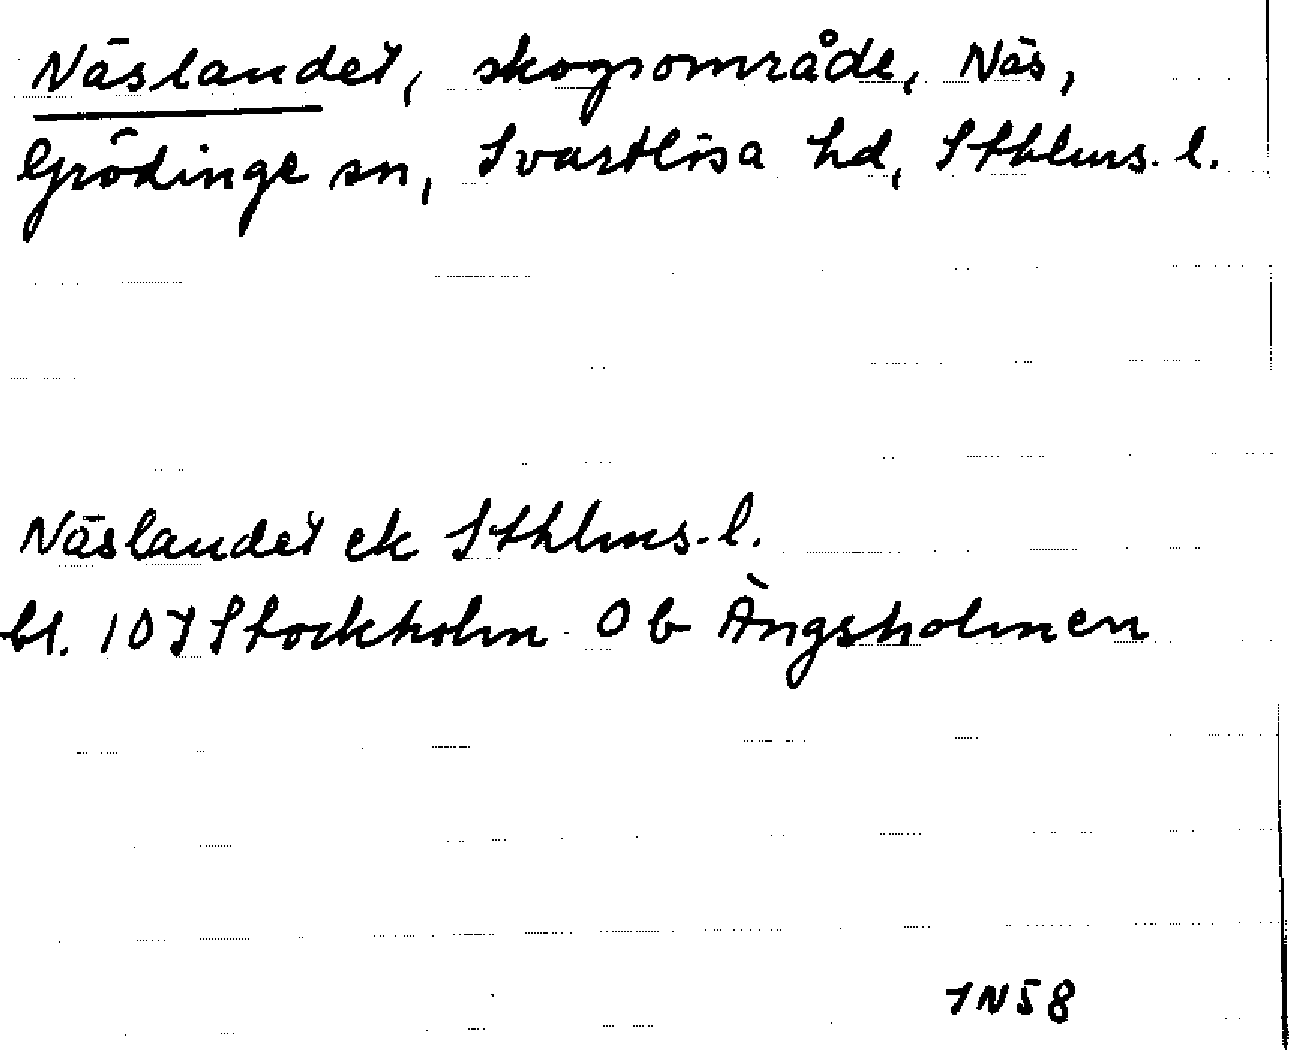 Näslandet, skogsområde, Näs,
Grödinge sn, Svartlösa hd, Sthlms. l.
Näslandet ek Sthlms. l.
bl. 10 Stockholm 0 b Ängsholmen
58